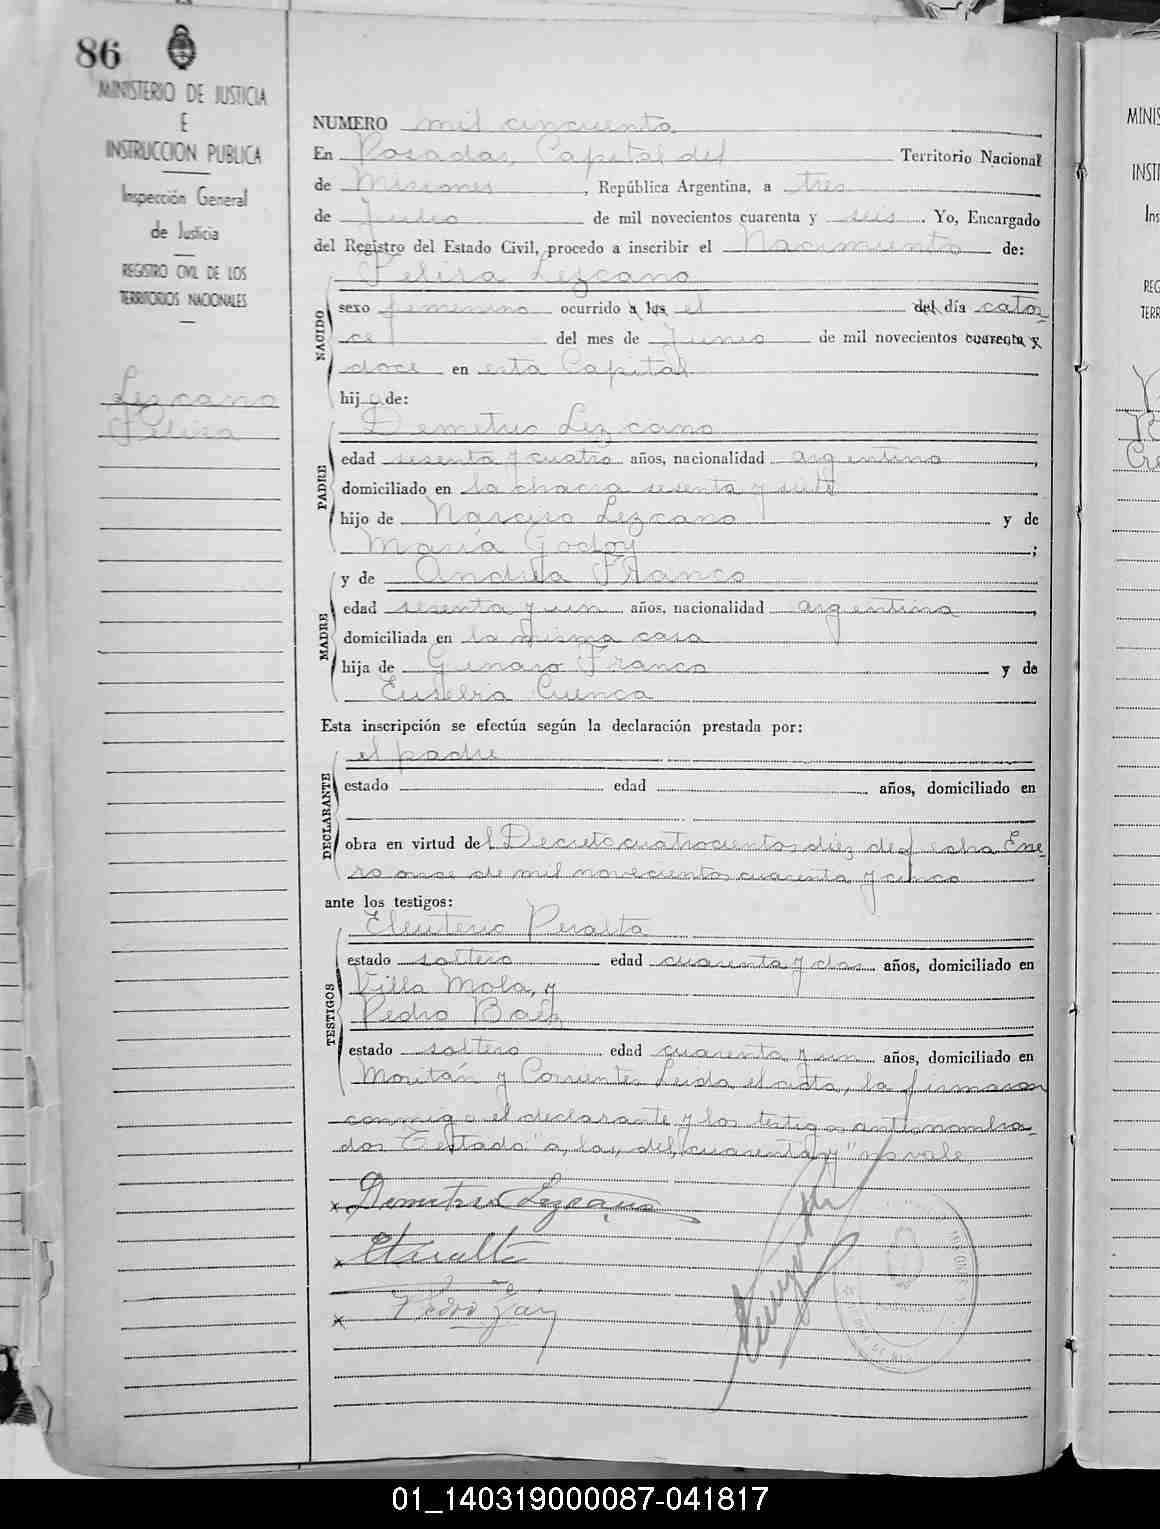 86
MINISTERIO DE JUSTICIA
E
INSTRUCCION PUBLICA
Inspección General
de Justicia
REGISTRO CIVIL DE LOS
TERRITORIOS NACIONALES
Lezcano
Felisa
NUMERO mil cincuenta
En Posadas, Capital del Territorio Nacional
de Misiones, República Argentina, a tres
de de mil novecientos cuarenta y seis. Yo, Encargado
del Registro del Estado Civil, procedo a inscribir el Nacimiento de:
NACIDO
Felisa Lezcano
sexo femenino ocurrido a las el del día cator-
ce del mes de Junio de mil novecientos cuarenta y
doce en esta Capital
hija de:
PADRE
Demetrio Lezcano
edad sesenta y cuatro años, nacionalidad argentino,
domiciliado en la chacra sesenta y siete
hijo de Narciso Lezcano y de
María Godoy;
MADRE
y de Andrea Franco
edad sesenta y un años, nacionalidad argentina,
domiciliada en la misma casa
hija de Genaro Franco y de
Eusebia Cuenca
Esta inscripción se efectúa según la declaración prestada por:
DECLARANTE
el padre
estado edad años, domiciliado en
obra en virtud del Decreto cuatrocientos diez de fecha Ene-
ro once de mil novecientos cuarenta y cinco
ante los testigos:
TESTIGOS
Eleuterio Peralta
estado soltero edad cuarenta y dos años, domiciliado en
Villa Mola, y
Pedro Baez
estado soltero edad cuarenta y un años, domiciliado en
Moritán y Corrientes Leida el acta, la firmaron
conmigo el declarante y los testigos antenombra-
dos Testado "a, las, del, cuarenta y" no vale
x Demetrio Lezcano
x EPeralta
x Pedro
MINIS
INSTI
Ins
REG
TERR
01_140319000087-041817